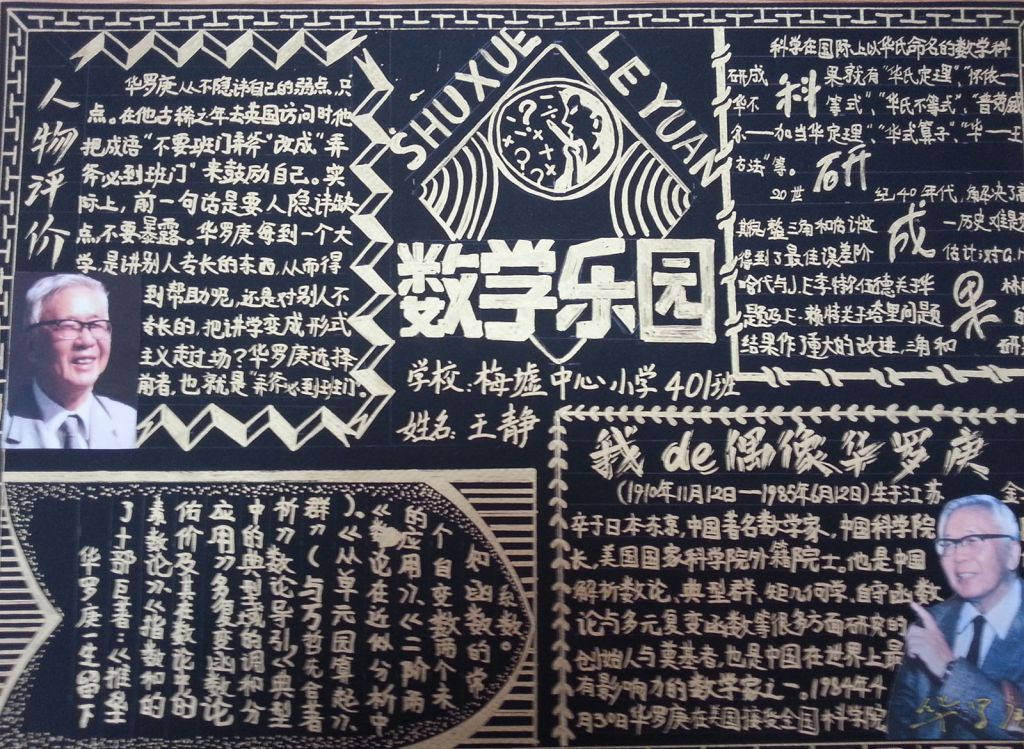 SHUXUE LEYUAN
数学乐园
学校:梅墟中心小学401班
姓名:王静
人物评价
华罗庚从不隐讳自己的弱点,只
点。在他古稀之年去英国访问时他
把成语“不要班门弄斧”改成“弄
斧必到班门”来鼓励自己。实
际上,前一句话是要人隐讳缺
点不要暴露。华罗庚每到一个大
学,是讲别人专长的东西,从而得
到帮助呢,还是对别人不
专长的,把讲学变成形式
主义走过场?华罗庚选择
前者,也就是“弄斧必到班门。
科研成果
科学在国际上以华氏命名的数学科
研成果就有“华氏定理”,“怀依—
华不等式”,“华氏不等式”,“普劳威
尔—加当华定理”,“华式算子”,“华—王
方法”等。
20世纪40年代,解决了高
斯完整三角和的估计这一历史难题
得到了最佳误差阶估计;对G.H
哈代与J.E李特尔伍德关于华林
题及E.赖特关于塔里问题的
结果作了重大的改进,三角和研
我de偶像华罗庚
(1910年11月12日—1985年6月12日)生于江苏金
卒于日本东京,中国著名数学家,中国科学院
长,美国国家科学院外籍院士。他是中国
解析数论、典型群、矩几何学、自守函数
论与多元复变函数等很多方面研究的
创始人与奠基者,也是中国在世界上最
有影响力的数学家之一。1984年4
月30日华罗庚在美国接受全国科学院
华罗庚一生留下
了十部巨著:《堆垒
素数论》《指数和的
估价及其在数论中的
应用》《多复变函数论
中的典型域的调和分
析》《数论导引》《典型
群》(与万哲先合著
)、《从单元圆算起》、
《数论在近似分析中
的应用》、《二阶两
个自变数两个未
知函数的常
系数。